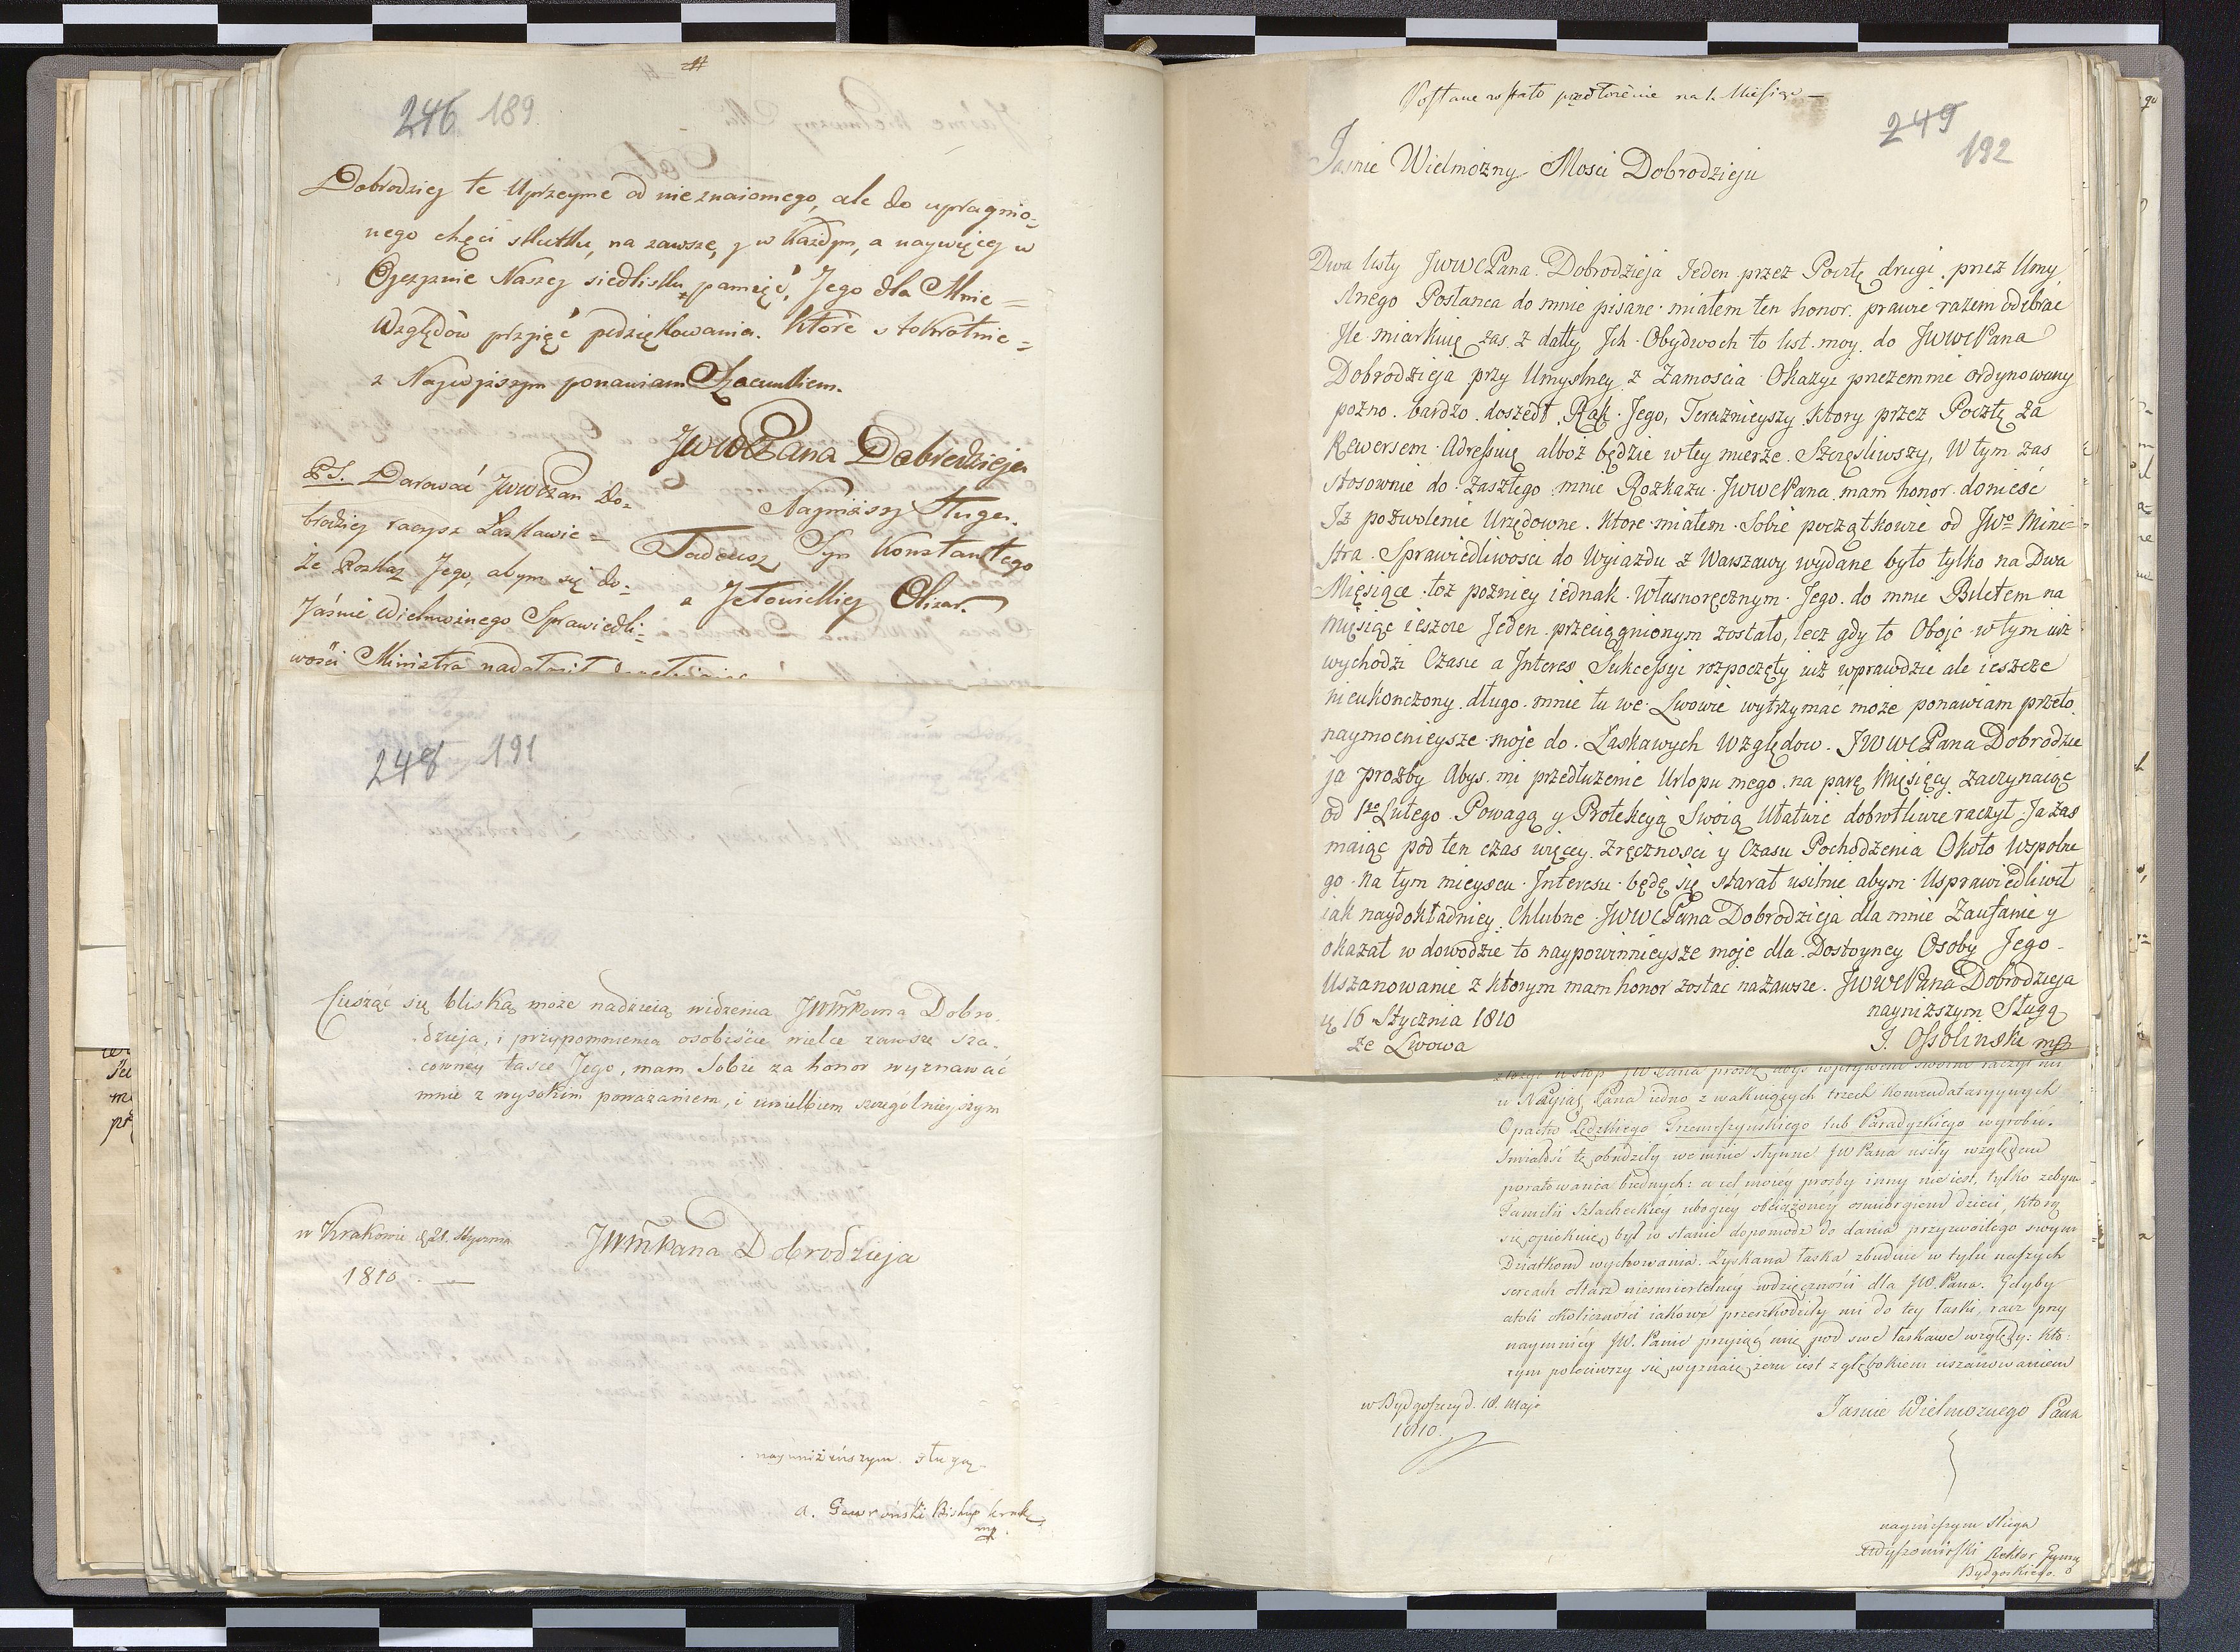 246 189.
Dobrodziej te Uprzeyme od nieznaiomego, ale do upragnio=
nego chęci skutku, na zawsze, y w Każdym, a naywięcej w
Oyczyznie Naszej siedlisku, pamięć, Jego dla Mnie =
Względów przyjąć podziękowania. Które stokrotnie =
z Naywyższym ponawiam Szacunkiem.
JWWCPana Dobrodzieja
Nayniższy Sługa.
Tadeusz Syn Konstantego
z Jełowickiej Olizar.
PS. Darować JWWCPan Do=
brodziej raczysz Łaskawie =
że Rozkaz Jego, abym się do=
Jaśnie Wielmożnego Sprawiedli=
wości Ministra
248 191
Ciesząc się bliską może nadzieią widzenia JWmPana Dobro.
dzieja, i przypomnienia osobiście wielce zawsze sza.
cowney łasce Jego, mam Sobie za honor wyznawać
mnie z wysokim poważaniem, i uwielbieniem szczegolnieyszym
w Krakowie d 21. Stycznia
1810. —
JWmPana Dobrodzieja
nayuniżeńszym sługą
A. Gawroński Biskup krak.
mp.
przedłożenie na 1. Miesiąc —
249
192
Jasnie Wielmożny Mosci Dobrodzieju
Dwa listy JWWCPana Dobrodzieja Jeden przez Pocztę drugi przez Umy
slnego Posłanca do mnie pisane miałem ten honor prawie razem odebrac
Ile miarkuię zas z datty Jch Obydwoch to list moy do JWWCPana
Dobrodzieja przy Umyslney z Zamoscia Okazyi przezemnie ordynowany
pozno bardzo doszedł Rąk Jego, Teraznieyszy ktory przez Pocztę za
Rewersem Adressuię alboż będzie w tey mierze Szczęsliwszy, W tym zas
stosownie do zaszłego mnie Rozkazu JWWCPana mam honor donieść
Iż pozwolenie Urzędowne ktore miałem Sobie początkowie od JWo Mini=
stra Sprawiedliwosci do Wyiazdu z Warszawy wydane było tylko na Dwa
Miesiące toż pozniey iednak własnoręcznym Jego do mnie Biletem na
Miesiąc ieszcze Jeden przeciągnionym zostało, lecz gdy to Oboje w tym iuż
wychodzi Czasie a Interes Sukcessyi rozpoczęty iuż wprawdzie ale ieszcze
nieukonczony długo mnie tu we Lwowie wytrzymać może ponawiam przeto
naymocnieysze moje do Łaskawych Względow JWWCPana Dobrodzie
ja prozby Abys mi przedłużenie Urlopu mego na parę Miesięcy zaczynaiąc
od 1go Lutego Powagą y Protekcyą Swoią Ułatwic dobrotliwie raczył Ja zas
maiąc pod ten czas więcey Zręcznosci y Czasu Pochodzenia Około Wspolne
go na tym mieyscu Interesu będę się starał usilnie abym Usprawiedliwił
iak naydokładniey Chlubne JWWCPana Dobrodzieja dla mnie Zaufanie y
okazał w dowodzie to naypowinnieysze moje dla Dostoyney Osoby Jego
Uszanowanie z ktorym mam honor zostac na zawsze. JWWCPana Dobrodzieja
d 16 Stycznia 1810
ze Lwowa
nayniższym Sługą
J. Ossolinski mp
u Nayiaś Pana iedno z wakuiących trzech komendataryynych
Opactw Lędzkiego Trzemeszynskiego lub Paradyzkiego wyrobić.
Smiałość tę obudziły we mnie słynne JWPana usiły względem
poratowania biednych: a cel moiey prosby inny nie iest, tylko żebym
Familii Szlacheckiey ubogiey obciążoney ośmiorgiem dzieci, którą
się opiekuię, był w stanie dopomodz do dania przyzwoitego swym
Dziatkom wychowania. Zyskana łaska zbuduie w tylu naszych
sercach ołtarz nieśmiertelney wdzięczności dla JW. Pana. Gdyby
atoli okoliczności iakowe przeszkodziły mi do tey łaski, racz przy
naymniey JW. Panie przyiąć mię pod swe łaskawe względy: któ=
rym poleciwszy się wyznaię, żem iest z głębokiem uszanowaniem
w Bydgoszczy d. 18. Maja
1810.
Jasnie Wielmożnego Pana
nayniższym Sługą
Rektor Gymn
Bydgoskiego